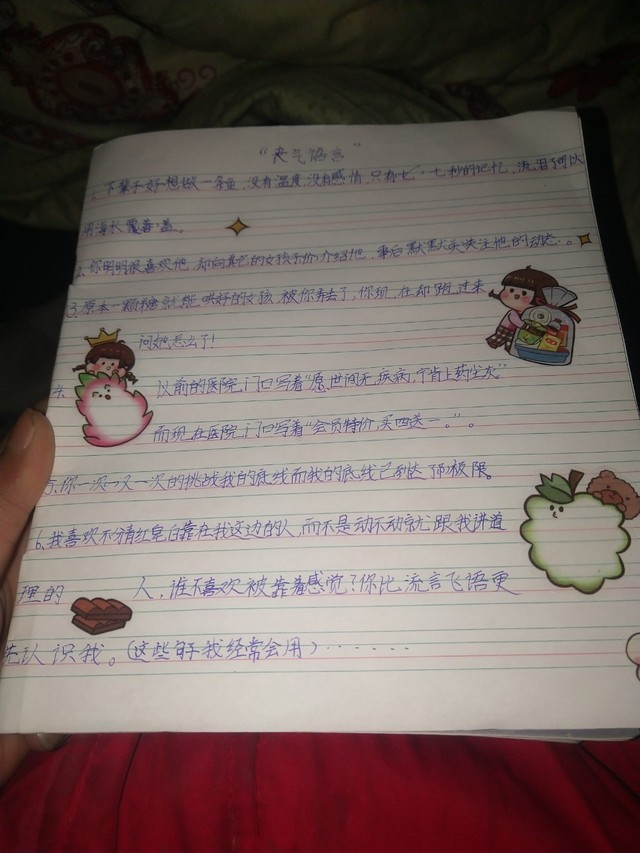 “丧气语言”
1、下辈子好想做一条鱼，没有温度，没有感情，只有七、七秒的记忆，流泪了可以
用海水覆盖盖。
2、你明明很喜欢他，却向其它的女孩子介绍他，事后默默关注他的动态。
3、原本一颗糖就能哄好的女孩，被你弄丢了，你现在却跑过来
问她怎么了！
4、以前的医院门口写着“愿世间无疾病，宁肯上药尘灰”
而现在医院门口写着“会员特价，买四送一。”。
5、你一次又一次的挑战我的底线而我的底线已到达了极限。
6、我喜欢不分青红皂白靠在我这边的人，而不是动不动就跟我讲道
理的人，谁不喜欢被靠着感觉？你比流言飞语更
先认识我。（这些句子我经常会用）······